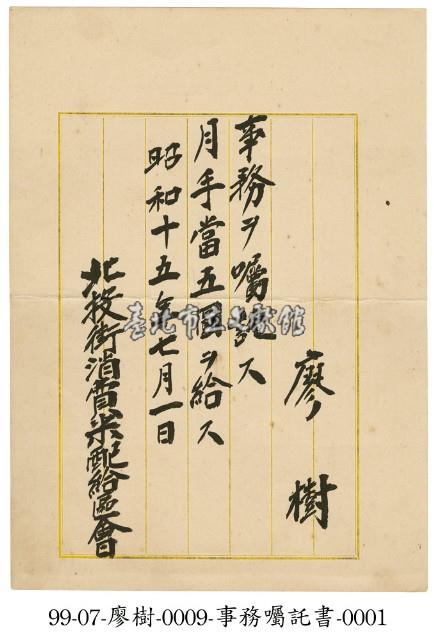 廖樹
事務ヲ囑託ス
月手當五圓ヲ給ス
昭和十五年七月一日
北投街消費米配給區會
臺北市立文獻館
99-07-廖樹-0009-事務囑託書-0001